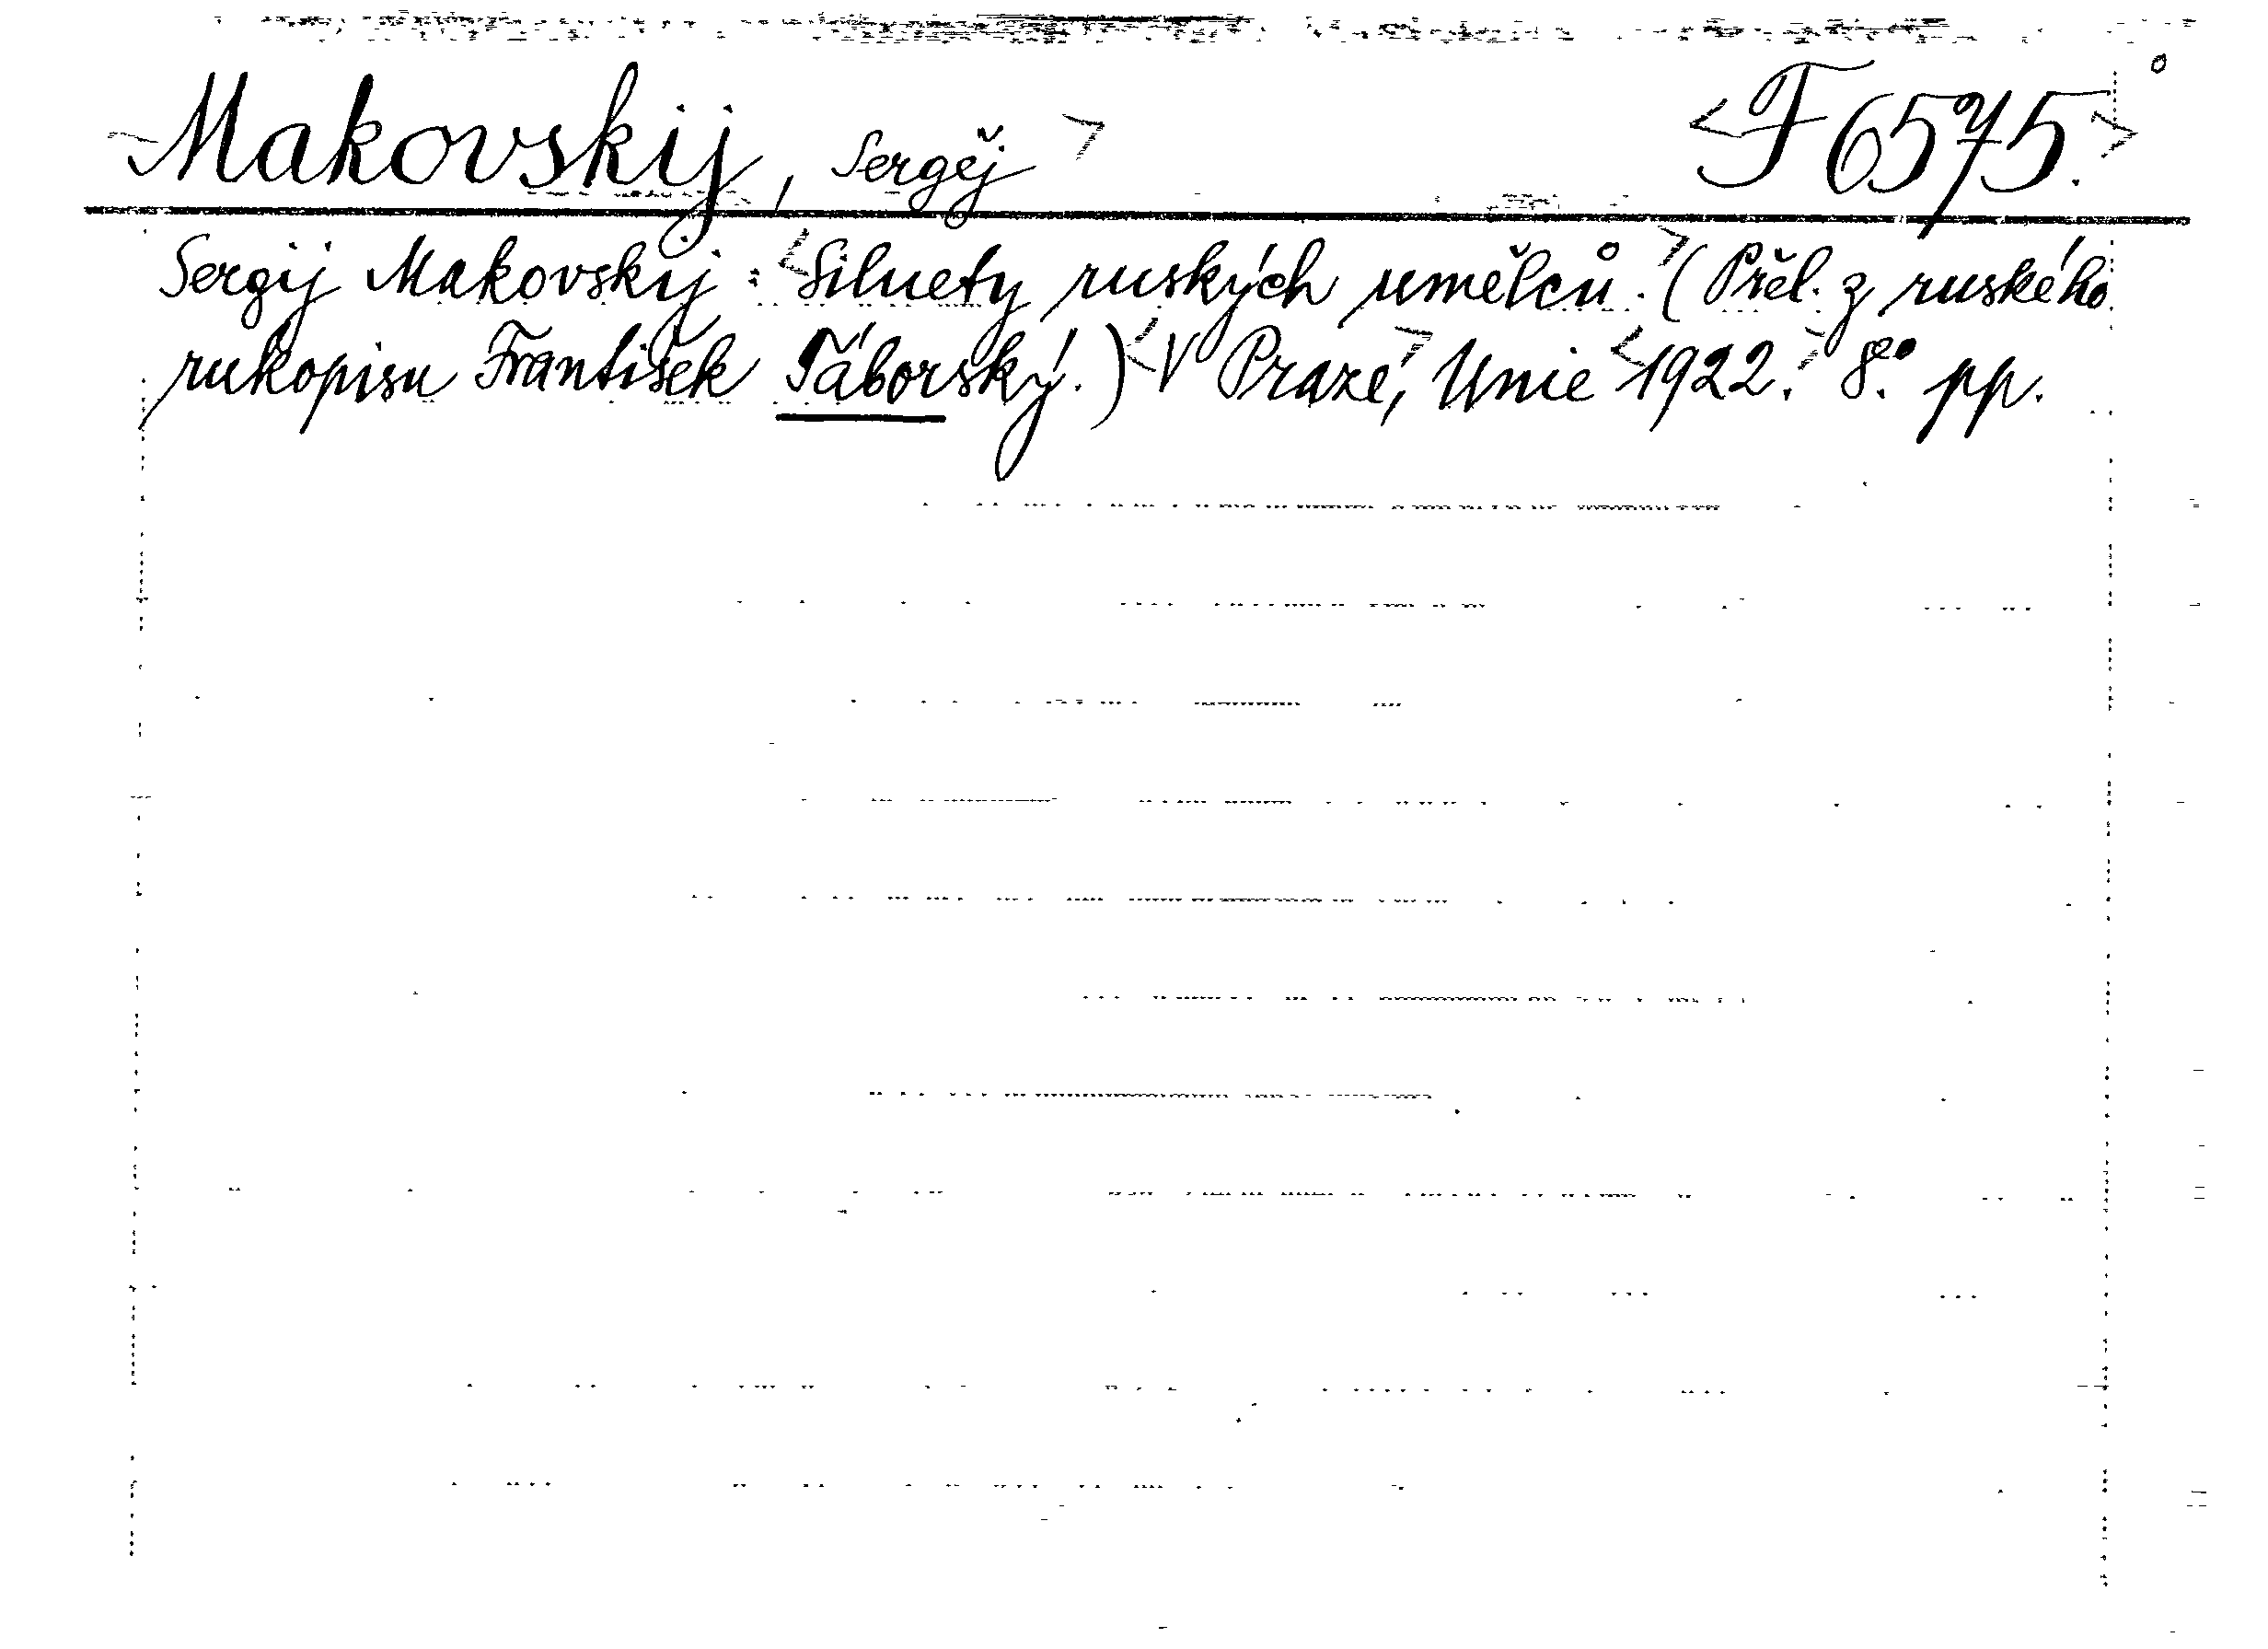 Makovskij, Sergěj F 6575.
Sergij Makovskij: Siluety ruských umělců. (Přel. z ruského
rukopisu František Táborský.) V Praze, Unie 1922. 8º. pp.